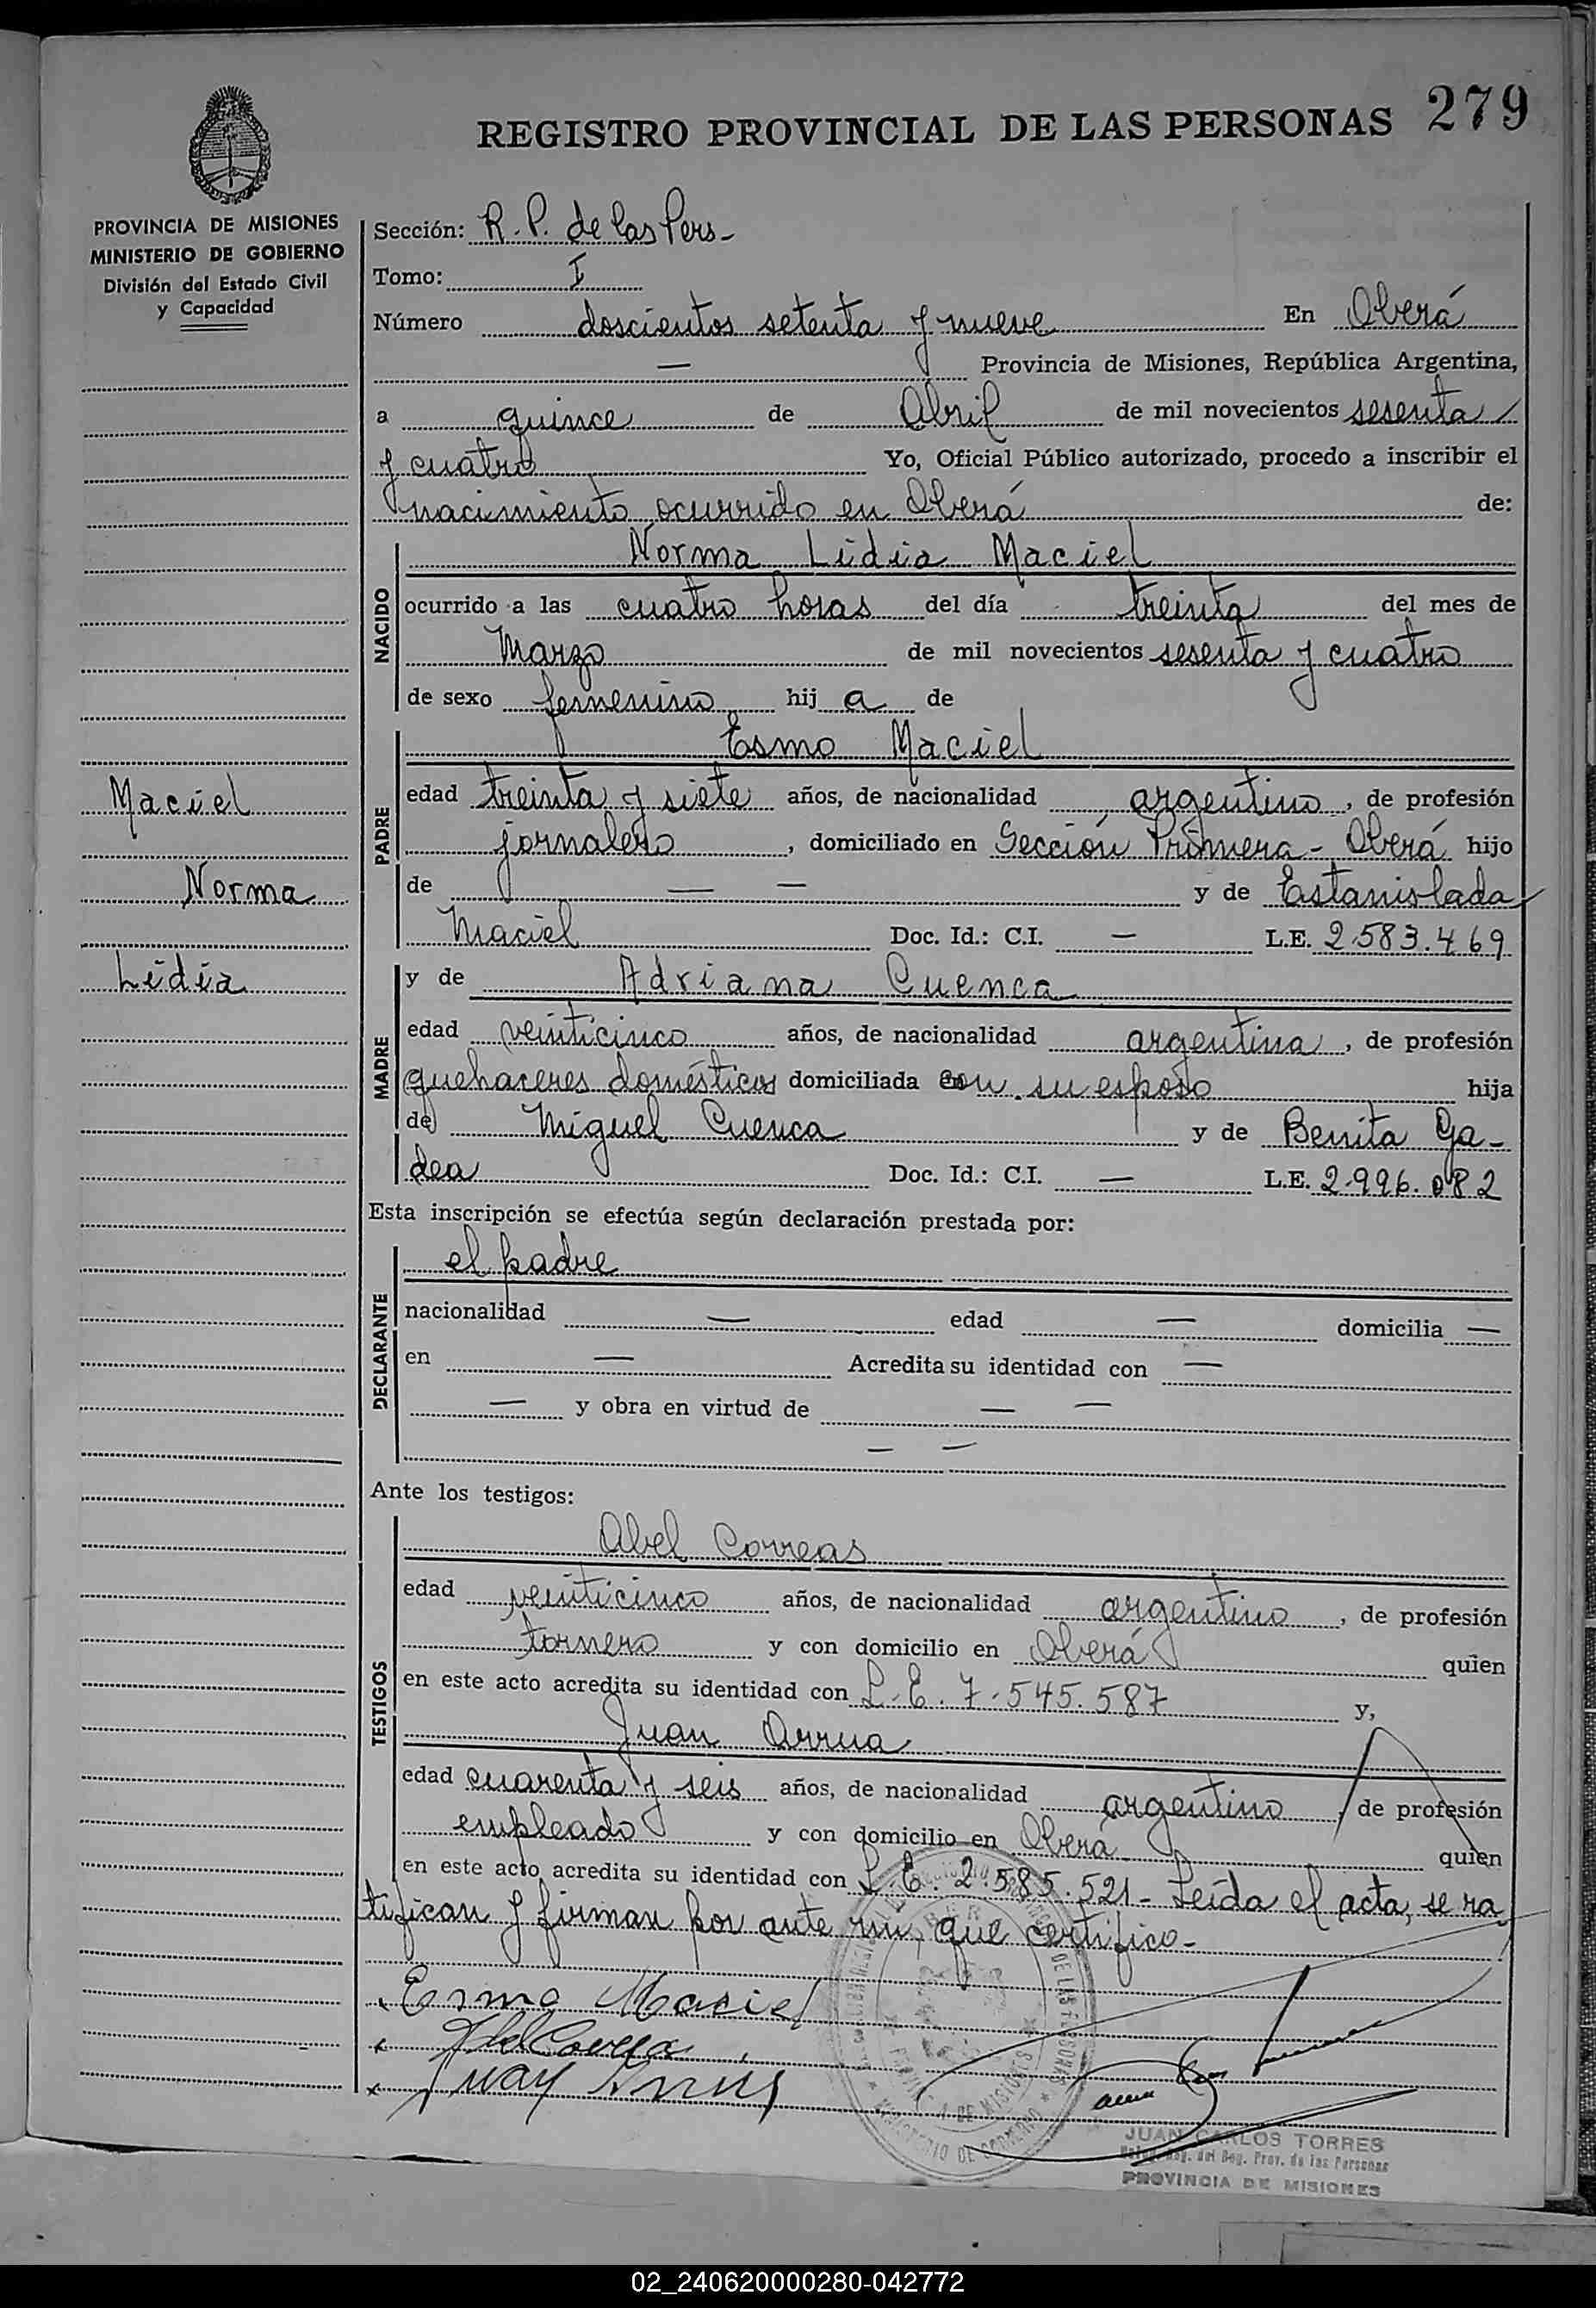 REGISTRO PROVINCIAL DE LAS PERSONAS 279
PROVINCIA DE MISIONES
MINISTERIO DE GOBIERNO
División del Estado Civil
y Capacidad
Sección: R. P. de las Pers-
Tomo: I
Número doscientos setenta y nueve En Oberá
— Provincia de Misiones, República Argentina,
a quince de Abril de mil novecientos sesenta
y cuatro Yo, Oficial Público autorizado, procedo a inscribir el
nacimiento ocurrido en Oberá de:
NACIDO
Norma Lidia Maciel
ocurrido a las cuatro horas del día treinta del mes de
Marzo de mil novecientos sesenta y cuatro
de sexo femenino hij a de
PADRE
Esmo Maciel
edad treinta y siete años, de nacionalidad argentino, de profesión
jornalero, domiciliado en Sección Primera - Oberá hijo
de — — y de Estanislada
Maciel Doc. Id.: C.I. — L.E. 2.583.469
Maciel
Norma
Lidia
MADRE
y de Adriana Cuenca
edad veinticinco años, de nacionalidad argentina, de profesión
quehaceres domésticos domiciliada con su esposo hija
de Miguel Cuenca y de Benita Ga-
dea Doc. Id.: C.I. — L.E. 2.996.082
Esta inscripción se efectúa según declaración prestada por:
DECLARANTE
el padre
nacionalidad — edad — domicilia —
en — Acredita su identidad con —
— y obra en virtud de — —
— —
Ante los testigos:
TESTIGOS
Abel Correas
edad veinticinco años, de nacionalidad argentino, de profesión
tornero y con domicilio en Oberá quien
en este acto acredita su identidad con L.E. 7.545.587 y,
Juan Arrua
edad cuarenta y seis años, de nacionalidad argentino, de profesión
empleado y con domicilio en Oberá quien
en este acto acredita su identidad con L.E. 2.585.521- Leída el acta, se ra
tifican y firman por ante mi, que certifico-
Esmo Maciel
JUAN CARLOS TORRES
del Reg. Prov. de las Personas
PROVINCIA DE MISIONES
02_240620000280-042772